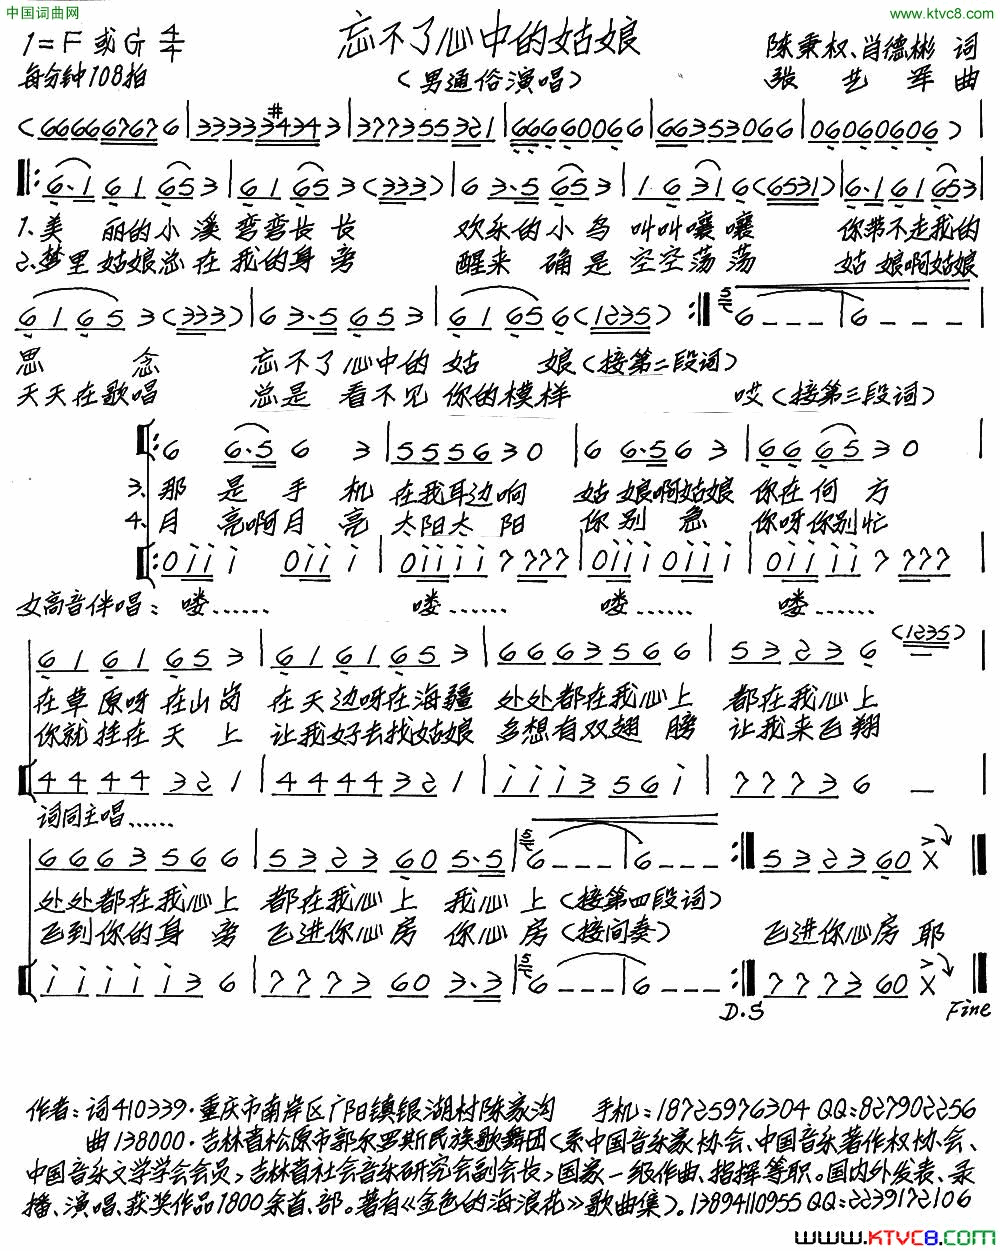 中国词曲网
www.ktvc8.com
忘不了心中的姑娘
1=F 或 G 4/4
每分钟108拍
(男通俗演唱)
陈秉权、肖德彬 词
张艺军 曲
(6666 6767 6 | 3333 #3434 3 | 377355 321 | 666600 66 | 66353066 | 06060606) |
6·1 61 65 3 | 61 65 3 (333) | 6 3·5 65 3 | 1 6 31 6 (6531) | 6·1 61 65 3 |
1.美 丽的小溪弯弯长长 欢乐的小鸟叫叫嚷嚷 你带不走我的
2.梦里姑娘总在我的身旁 醒来 确是空空荡荡 姑娘啊姑娘
61 65 3 (333) | 6 3·5 65 3 | 61 65 6 (1235) :| 5 6 --- | 6 --- |
思 念 忘不了心中的姑 娘(接第二段词)
天天在歌唱 总是看不见你的模样 哎(接第三段词)
6 6·5 6 3 | 555630 | 6 6·5 6 3 | 66 65 30 |
3.那 是 手 机 在我耳边响 姑 娘啊姑娘 你在何方
4.月 亮啊月 亮 太阳太 阳 你 别 急 你呀你别忙
0iii i 0iii i | 0iiii 7 777 | 0iii i 0iii i | 0iiii 7 777 |
女高音伴唱: 喽...... 喽...... 喽...... 喽......
61 61 65 3 | 61 61 65 3 | 666356 6 | 53236 (1235) |
在草原呀在山岗 在天边呀在海疆 处处都在我心上 都在我心上
你就挂在天 上 让我好去找姑娘 多想有双翅 膀 让我来飞翔
44 44 32 1 | 44 44 32 1 | iii356i | 77736 - |
词同主唱......
66635666 | 532360 5·5 | 5 6 --- | 6 --- :| 532360 X |
处处都在我心上 都在我心上 我心上(接第四段词)
飞到你的身 旁 飞进你心房 你心房(接间奏) 飞进你心房 耶
iiiii36 | 777360 3·3 | 5 6 --- | 6 --- :| 777360 X |
D.S Fine
作者:词410339·重庆市南岸区广阳镇银湖村陈家沟 手机:18725976304 QQ:827902256
曲138000·吉林省松原市郭尔罗斯民族歌舞团(系中国音乐家协会、中国音乐著作权协会、
中国音乐文学学会会员,吉林省社会音乐研究会副会长,国家一级作曲、指挥等职。国内外发表、录
播、演唱、获奖作品1800余首、部。著有《金色的海浪花》歌曲集)。13894110955 QQ:2239172106
www.KTVC8.com